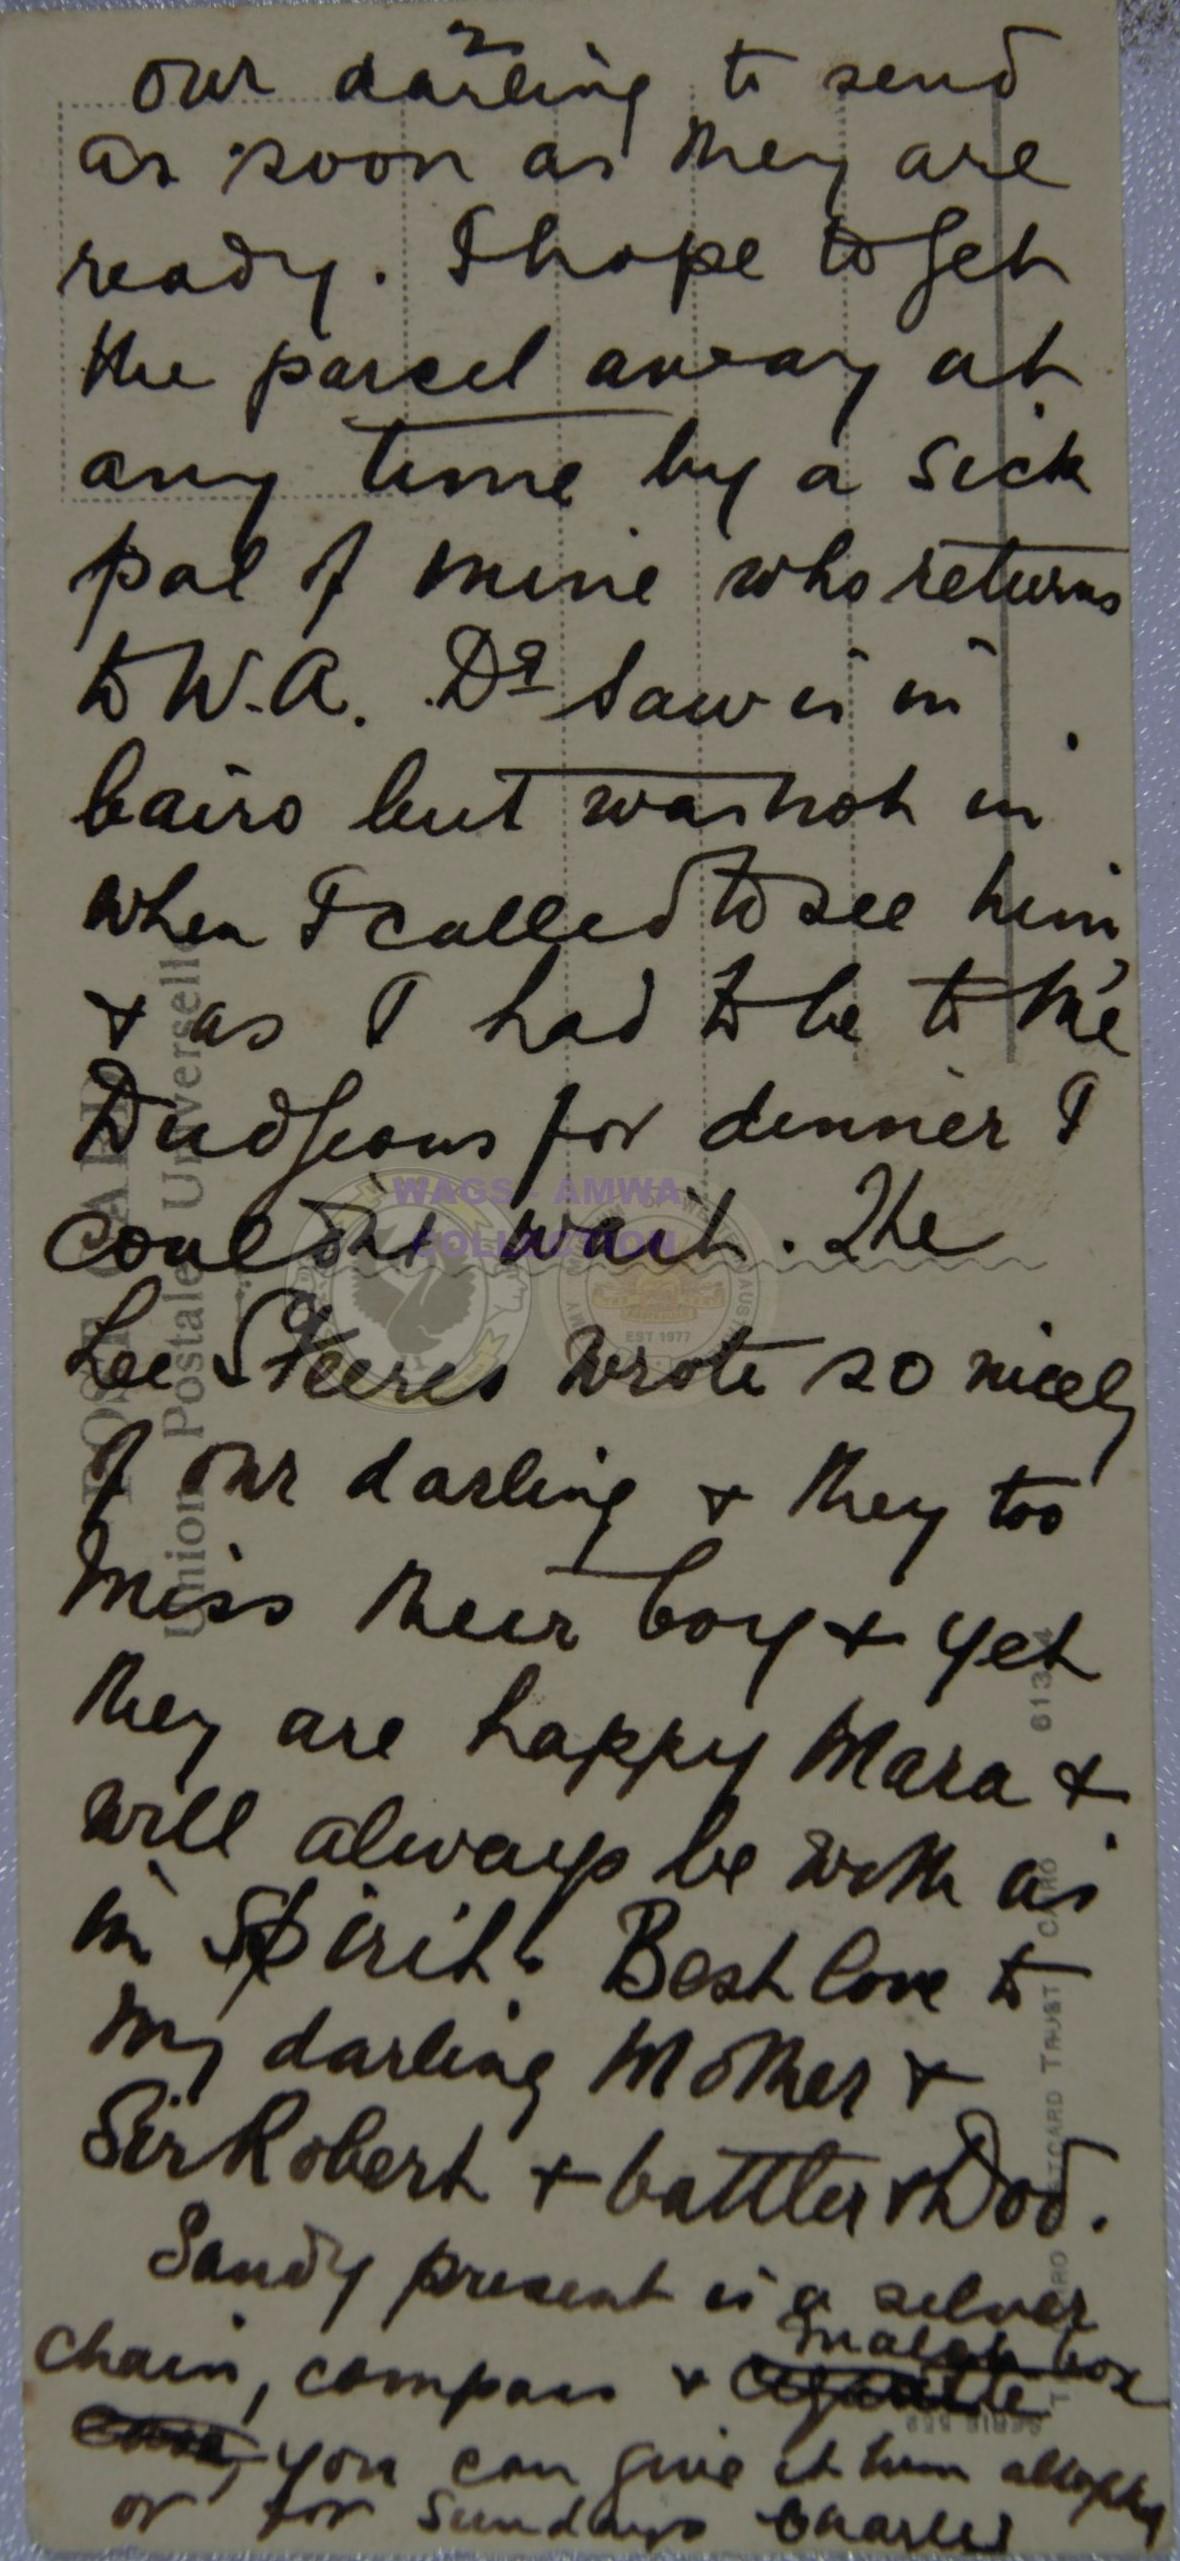 2
our darling to send
as soon as they are
ready. I hope to get
the parcel away at
any time by a sick
pal of mine who returns
to W.A. Dr Saw is in
Cairo but was not in
when I called to see him
& as I had to be to the
Dudgeons for dinner I
couldnt wait. The
Lee Steeres wrote so nicely
of our darling & they too
miss their boy & yet
they are happy Mara &
will always be with us
in Spirit. Best love to
my darling Mother &
Sir Robert & battler & Dod.
Sandy present is a silver
match box
chain, compass & cigarette
case, you can give it him
or for Sundays Charles
POST CARD
Union Postale Universelle
613
THE CAIRO POSTCARD TRUST CAIRO
SERIE 559
WAGS - AMWA
COLLECTION
EST 1977